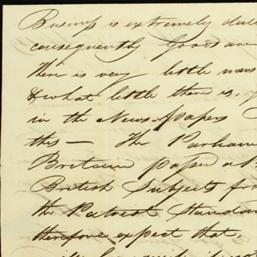 Business is extremely dull
consequently Goods are
There is very little news
& what little there is,
in the News-papers
this — The Parliam
Britain passed a
British Subjects fro
the Patriot Standar
therefore expect that